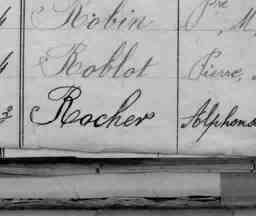 4 Robin
4 Roblot Pierre,
Rocher Alphons